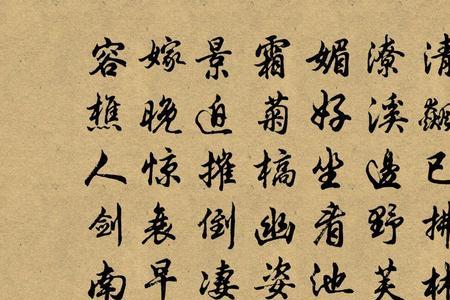 清飆已拂林
潦溪邊野芙
媚好坐看池
霜菊槁幽姿
景迫摧倒凄
嫁晚惊衰早
容樵人剑南